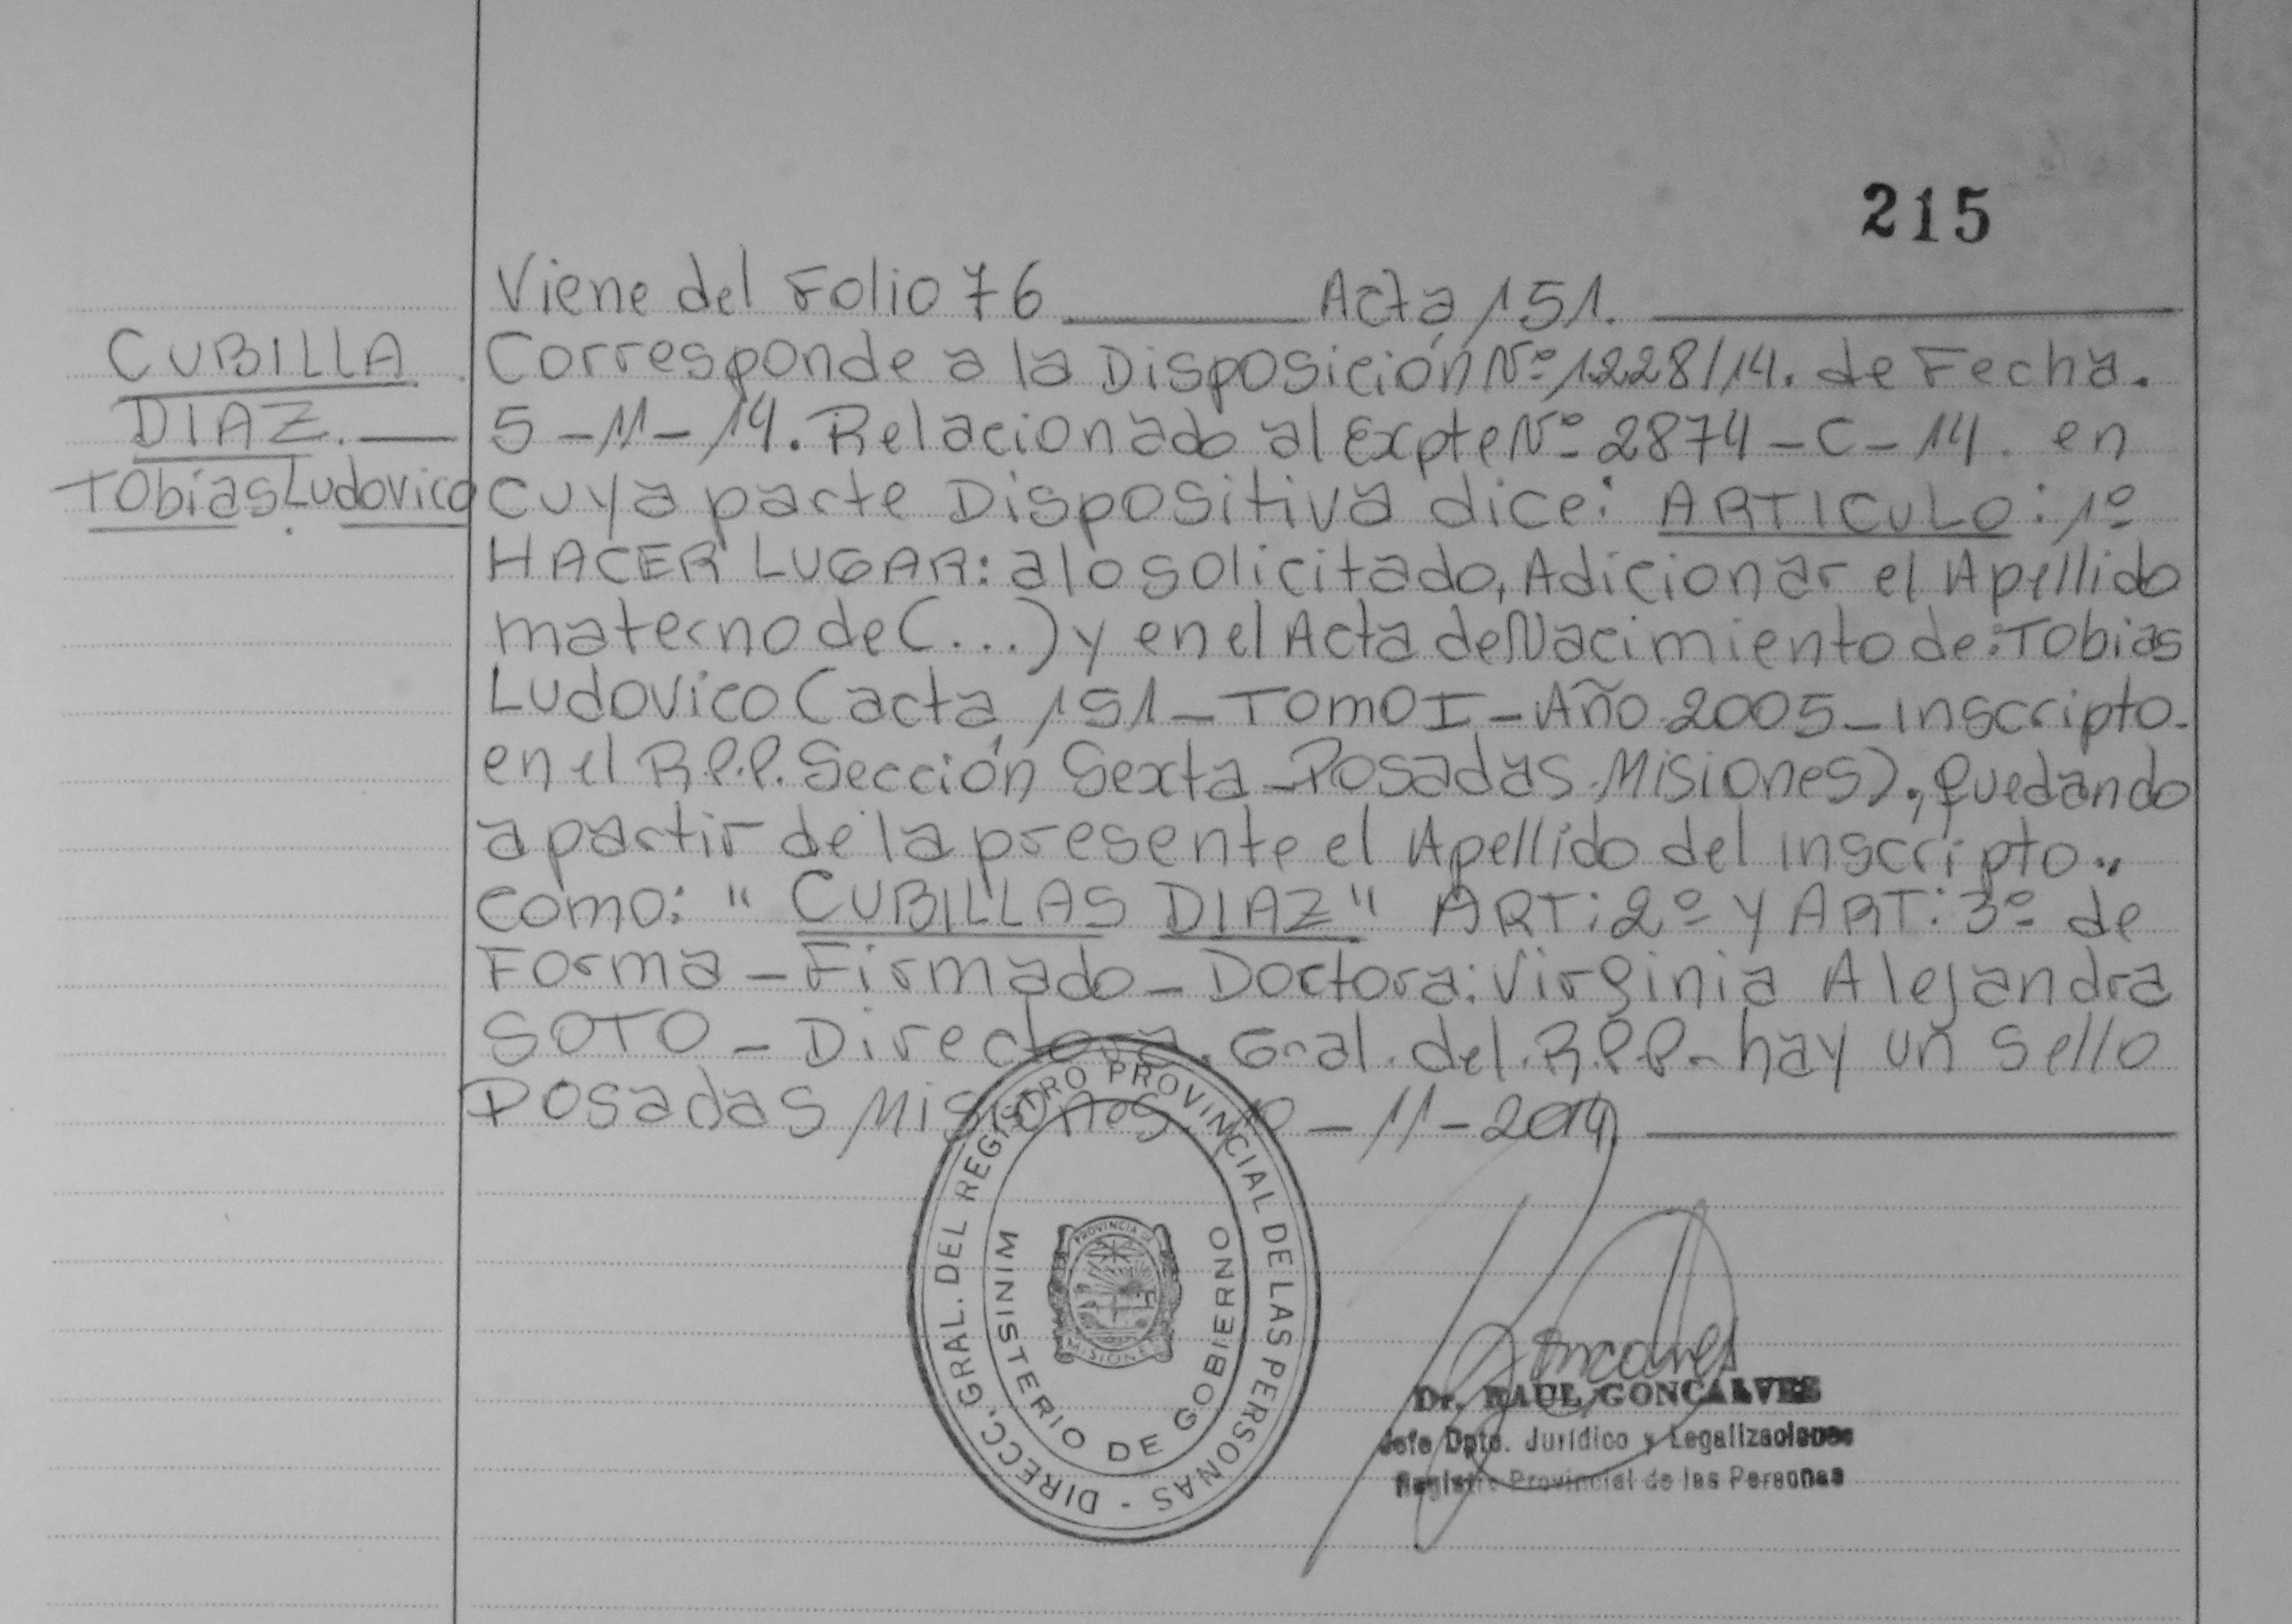 215
Viene del Folio 76 Acta 151.
CUBILLA
DIAZ.
Tobias Ludovico
Corresponde a la Disposición Nº 1228/14. de Fecha.
5-11-14. Relacionado al Expte Nº 2874-C-14. en
cuya parte Dispositiva dice: ARTICULO: 1º
HACER LUGAR: a lo solicitado, Adicionar el Apellido
materno de (...) y en el Acta de Nacimiento de: Tobias
Ludovico (acta 151-Tomo I-Año 2005-inscripto.
en el R.P.P. Sección Sexta-Posadas Misiones)., Quedando
a partir de la presente el Apellido del inscripto..
como: "CUBILLAS DIAZ" ART: 2º Y ART: 3º de
Forma-Firmado-Doctora: Virginia Alejandra
SOTO-Directora. Gral. del. R.P.P.-hay un sello
Posadas Misiones 10-11-2014
DIRECC. GRAL. DEL REGISTRO PROVINCIAL DE LAS PERSONAS -
MINISTERIO DE GOBIERNO
PROVINCIA DE
MISIONES
Goncalves
Dr. RAUL GONCALVES
Jefe Dpto. Jurídico y Legalizaciones
Registro Provincial de las Personas